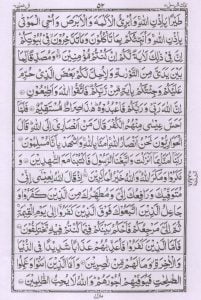 ۵۳
طَيْرًا بِاِذْنِ اللّٰهِ وَاُبْرِئُ الْاَكْمَهَ وَالْاَبْرَصَ وَاُحْيِ الْمَوْتٰى
بِاِذْنِ اللّٰهِ وَاُنَبِّئُكُمْ بِمَا تَاْكُلُوْنَ وَمَا تَدَّخِرُوْنَ فِيْ بُيُوْتِكُمْ
اِنَّ فِيْ ذٰلِكَ لَاٰيَةً لَّكُمْ اِنْ كُنْتُمْ مُّؤْمِنِيْنَ وَمُصَدِّقًا لِّمَا
بَيْنَ يَدَيَّ مِنَ التَّوْرٰىةِ وَلِاُحِلَّ لَكُمْ بَعْضَ الَّذِيْ حُرِّمَ
عَلَيْكُمْ وَجِئْتُكُمْ بِاٰيَةٍ مِّنْ رَّبِّكُمْ فَاتَّقُوا اللّٰهَ وَاَطِيْعُوْنِ
اِنَّ اللّٰهَ رَبِّيْ وَرَبُّكُمْ فَاعْبُدُوْهُ هٰذَا صِرَاطٌ مُّسْتَقِيْمٌ فَلَمَّا
اَحَسَّ عِيْسٰى مِنْهُمُ الْكُفْرَ قَالَ مَنْ اَنْصَارِيْ اِلَى اللّٰهِ قَالَ
الْحَوَارِيُّوْنَ نَحْنُ اَنْصَارُ اللّٰهِ اٰمَنَّا بِاللّٰهِ وَاشْهَدْ بِاَنَّا مُسْلِمُوْنَ
رَبَّنَا اٰمَنَّا بِمَا اَنْزَلْتَ وَاتَّبَعْنَا الرَّسُوْلَ فَاكْتُبْنَا مَعَ الشّٰهِدِيْنَ
وَمَكَرُوْا وَمَكَرَ اللّٰهُ وَاللّٰهُ خَيْرُ الْمٰكِرِيْنَ اِذْ قَالَ اللّٰهُ يٰعِيْسٰى اِنِّيْ
مُتَوَفِّيْكَ وَرَافِعُكَ اِلَيَّ وَمُطَهِّرُكَ مِنَ الَّذِيْنَ كَفَرُوْا وَ
جَاعِلُ الَّذِيْنَ اتَّبَعُوْكَ فَوْقَ الَّذِيْنَ كَفَرُوْا اِلٰى يَوْمِ الْقِيٰمَةِ
ثُمَّ اِلَيَّ مَرْجِعُكُمْ فَاَحْكُمُ بَيْنَكُمْ فِيْمَا كُنْتُمْ فِيْهِ تَخْتَلِفُوْنَ
فَاَمَّا الَّذِيْنَ كَفَرُوْا فَاُعَذِّبُهُمْ عَذَابًا شَدِيْدًا فِي الدُّنْيَا
وَالْاٰخِرَةِ وَمَا لَهُمْ مِّنْ نّٰصِرِيْنَ وَاَمَّا الَّذِيْنَ اٰمَنُوْا وَعَمِلُوا
الصّٰلِحٰتِ فَيُوَفِّيْهِمْ اُجُوْرَهُمْ وَاللّٰهُ لَا يُحِبُّ الظّٰلِمِيْنَ